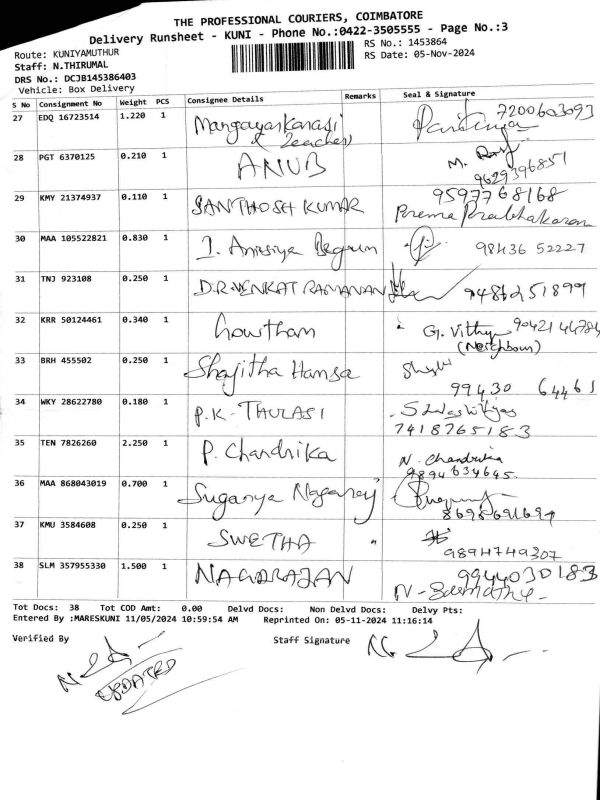 THE PROFESSIONAL COURIERS, COIMBATORE
Delivery Runsheet - KUNI - Phone No.:0422-3505555 - Page No.:3
Route: KUNIYAMUTHUR RS No.: 1453864
Staff: N.THIRUMAL RS Date: 05-Nov-2024
DRS No.: DCJB145386403
Vehicle: Box Delivery
S No Consignment No Weight PCS Consignee Details Remarks Seal & Signature
27 EDQ 16723514 1.220 1 Mangayarkarasi 7200603093
(Teacher)
28 PGT 6370125 0.210 1 ANUB M.
9629396851
29 KMY 21374937 0.110 1 SANTHOSH KUMAR 9597768168
Prema Prabhakaran
30 MAA 105522821 0.830 1 Begum 98436 52227
31 TNJ 923108 0.250 1 D.R.VENKAT RAMANAN 9486251899
32 KRR 50124461 0.340 1 Gowtham G. Vithya
(Neighbour)
33 BRH 455502 0.250 1 Shajitha Hamsa
99430 64461
34 WKY 28622780 0.180 1 P.K-THULASI
7418765183
35 TEN 7826260 2.250 1 P. Chandrika N. Chandrika
9894634645
36 MAA 868043019 0.700 1 Suganya Nagaraj
37 KMU 3584608 0.250 1 SWETHA "
9894749307
38 SLM 357955330 1.500 1 NAGARAJAN 9944030183
Tot Docs: 38 Tot COD Amt: 0.00 Delvd Docs: Non Delvd Docs: Delvy Pts:
Entered By :MARESKUNI 11/05/2024 10:59:54 AM Reprinted On: 05-11-2024 11:16:14
Verified By Staff Signature
UPDATED